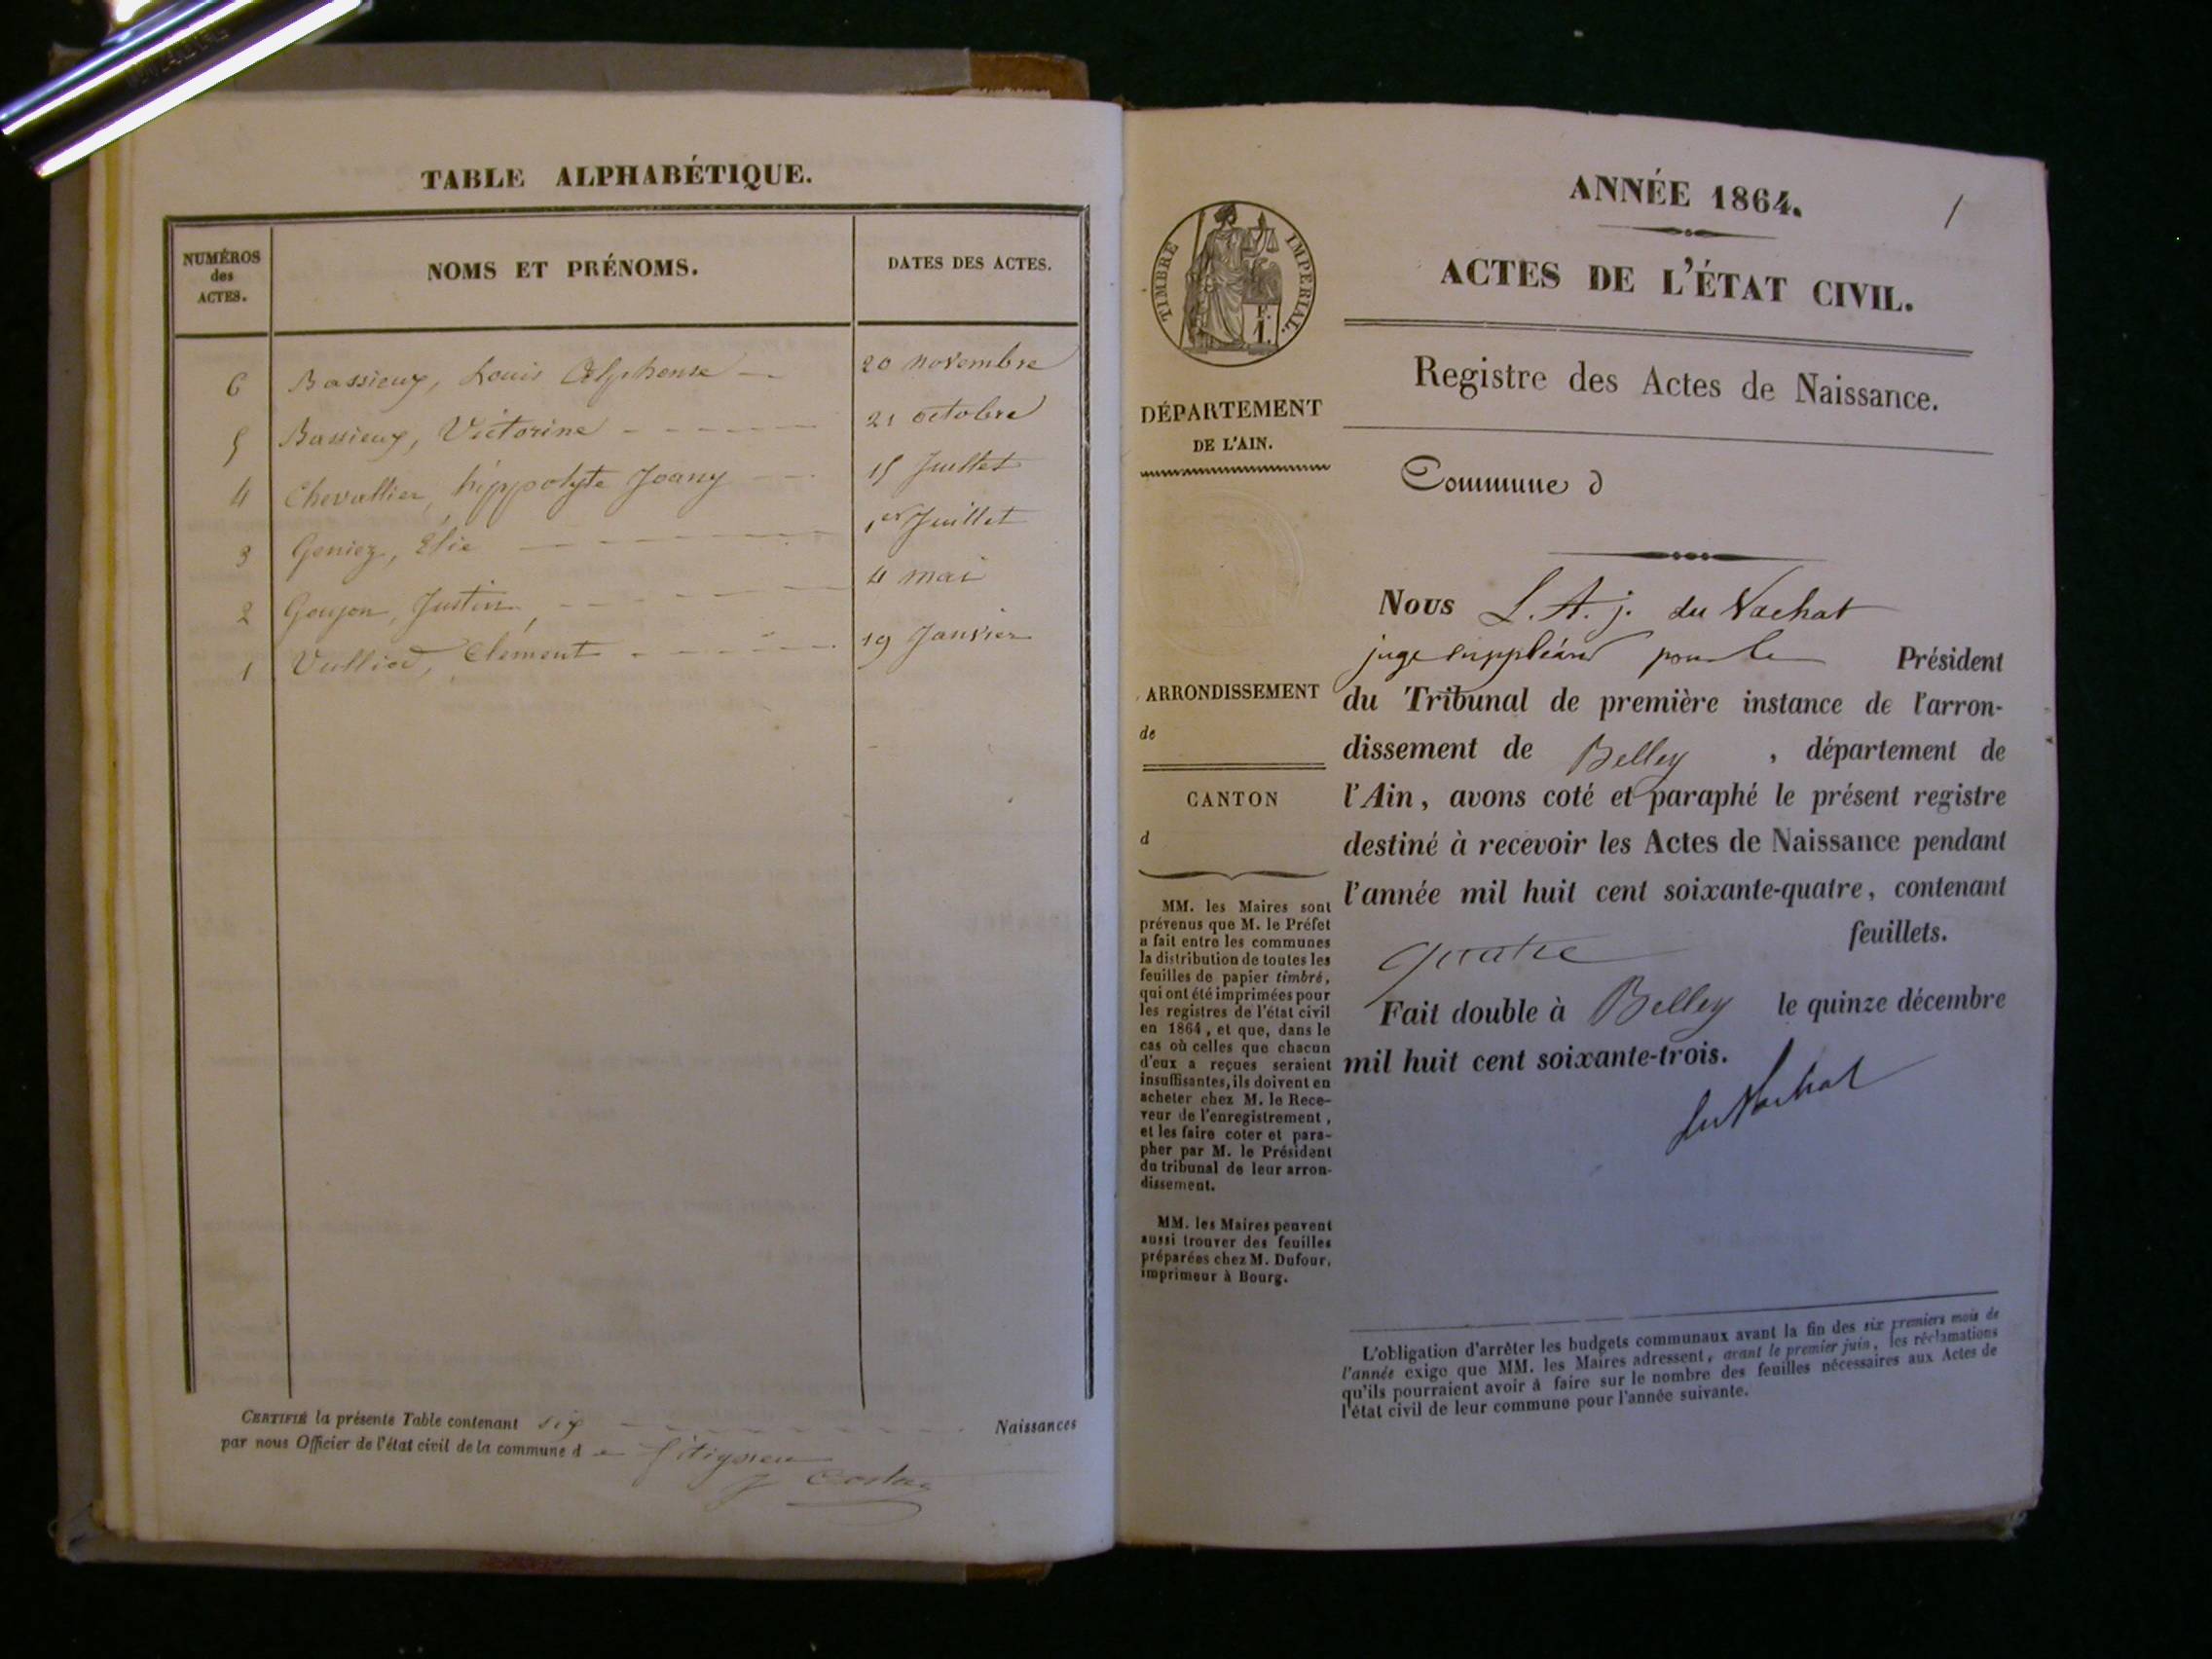 TABLE ALPHABÉTIQUE.
NUMÉROS
des
ACTES.
NOMS ET PRÉNOMS.
DATES DES ACTES.
6 Bassieux, Louis Alphonse 20 novembre
5 Bassieux, Victorine 21 octobre
4 Chevallier, hippolyte Joany 15 Juillet
3 Geniez, Elie 1er Juillet
2 Goujon, Justin 4 mai
1 Vulliod, Clément 19 Janvier
CERTIFIÉ la présente Table contenant six Naissances
par nous Officier de l'état civil de la commune de
ANNÉE 1864.
1
ACTES DE L'ÉTAT CIVIL.
Registre des Actes de Naissance.
TIMBRE IMPÉRIAL.
DÉPARTEMENT
DE L'AIN.
Commune d
Nous L. A. j. du Nachat
juge suppléant pour le Président
du Tribunal de première instance de l'arron-
dissement de Belley, département de
l'Ain, avons coté et paraphé le présent registre
destiné à recevoir les Actes de Naissance pendant
l'année mil huit cent soixante-quatre, contenant
quatre feuillets.
Fait double à Belley le quinze décembre
mil huit cent soixante-trois.
du Nachat
ARRONDISSEMENT
de
CANTON
d
MM. les Maires sont
prévenus que M. le Préfet
a fait entre les communes
la distribution de toutes les
feuilles de papier timbré,
qui ont été imprimées pour
les registres de l'état civil
en 1864, et que, dans le
cas où celles que chacun
d'eux a reçues seraient
insuffisantes, ils doivent en
acheter chez M. le Rece-
veur de l'enregistrement,
et les faire coter et para-
pher par M. le Président
du tribunal de leur arron-
dissement.
MM. les Maires peuvent
aussi trouver des feuilles
préparées chez M. Dufour,
imprimeur à Bourg.
L'obligation d'arrêter les budgets communaux avant la fin des six premiers mois de
l'année exige que MM. les Maires adressent, avant le premier juin, les réclamations
qu'ils pourraient avoir à faire sur le nombre des feuilles nécessaires aux Actes de
l'état civil de leur commune pour l'année suivante.